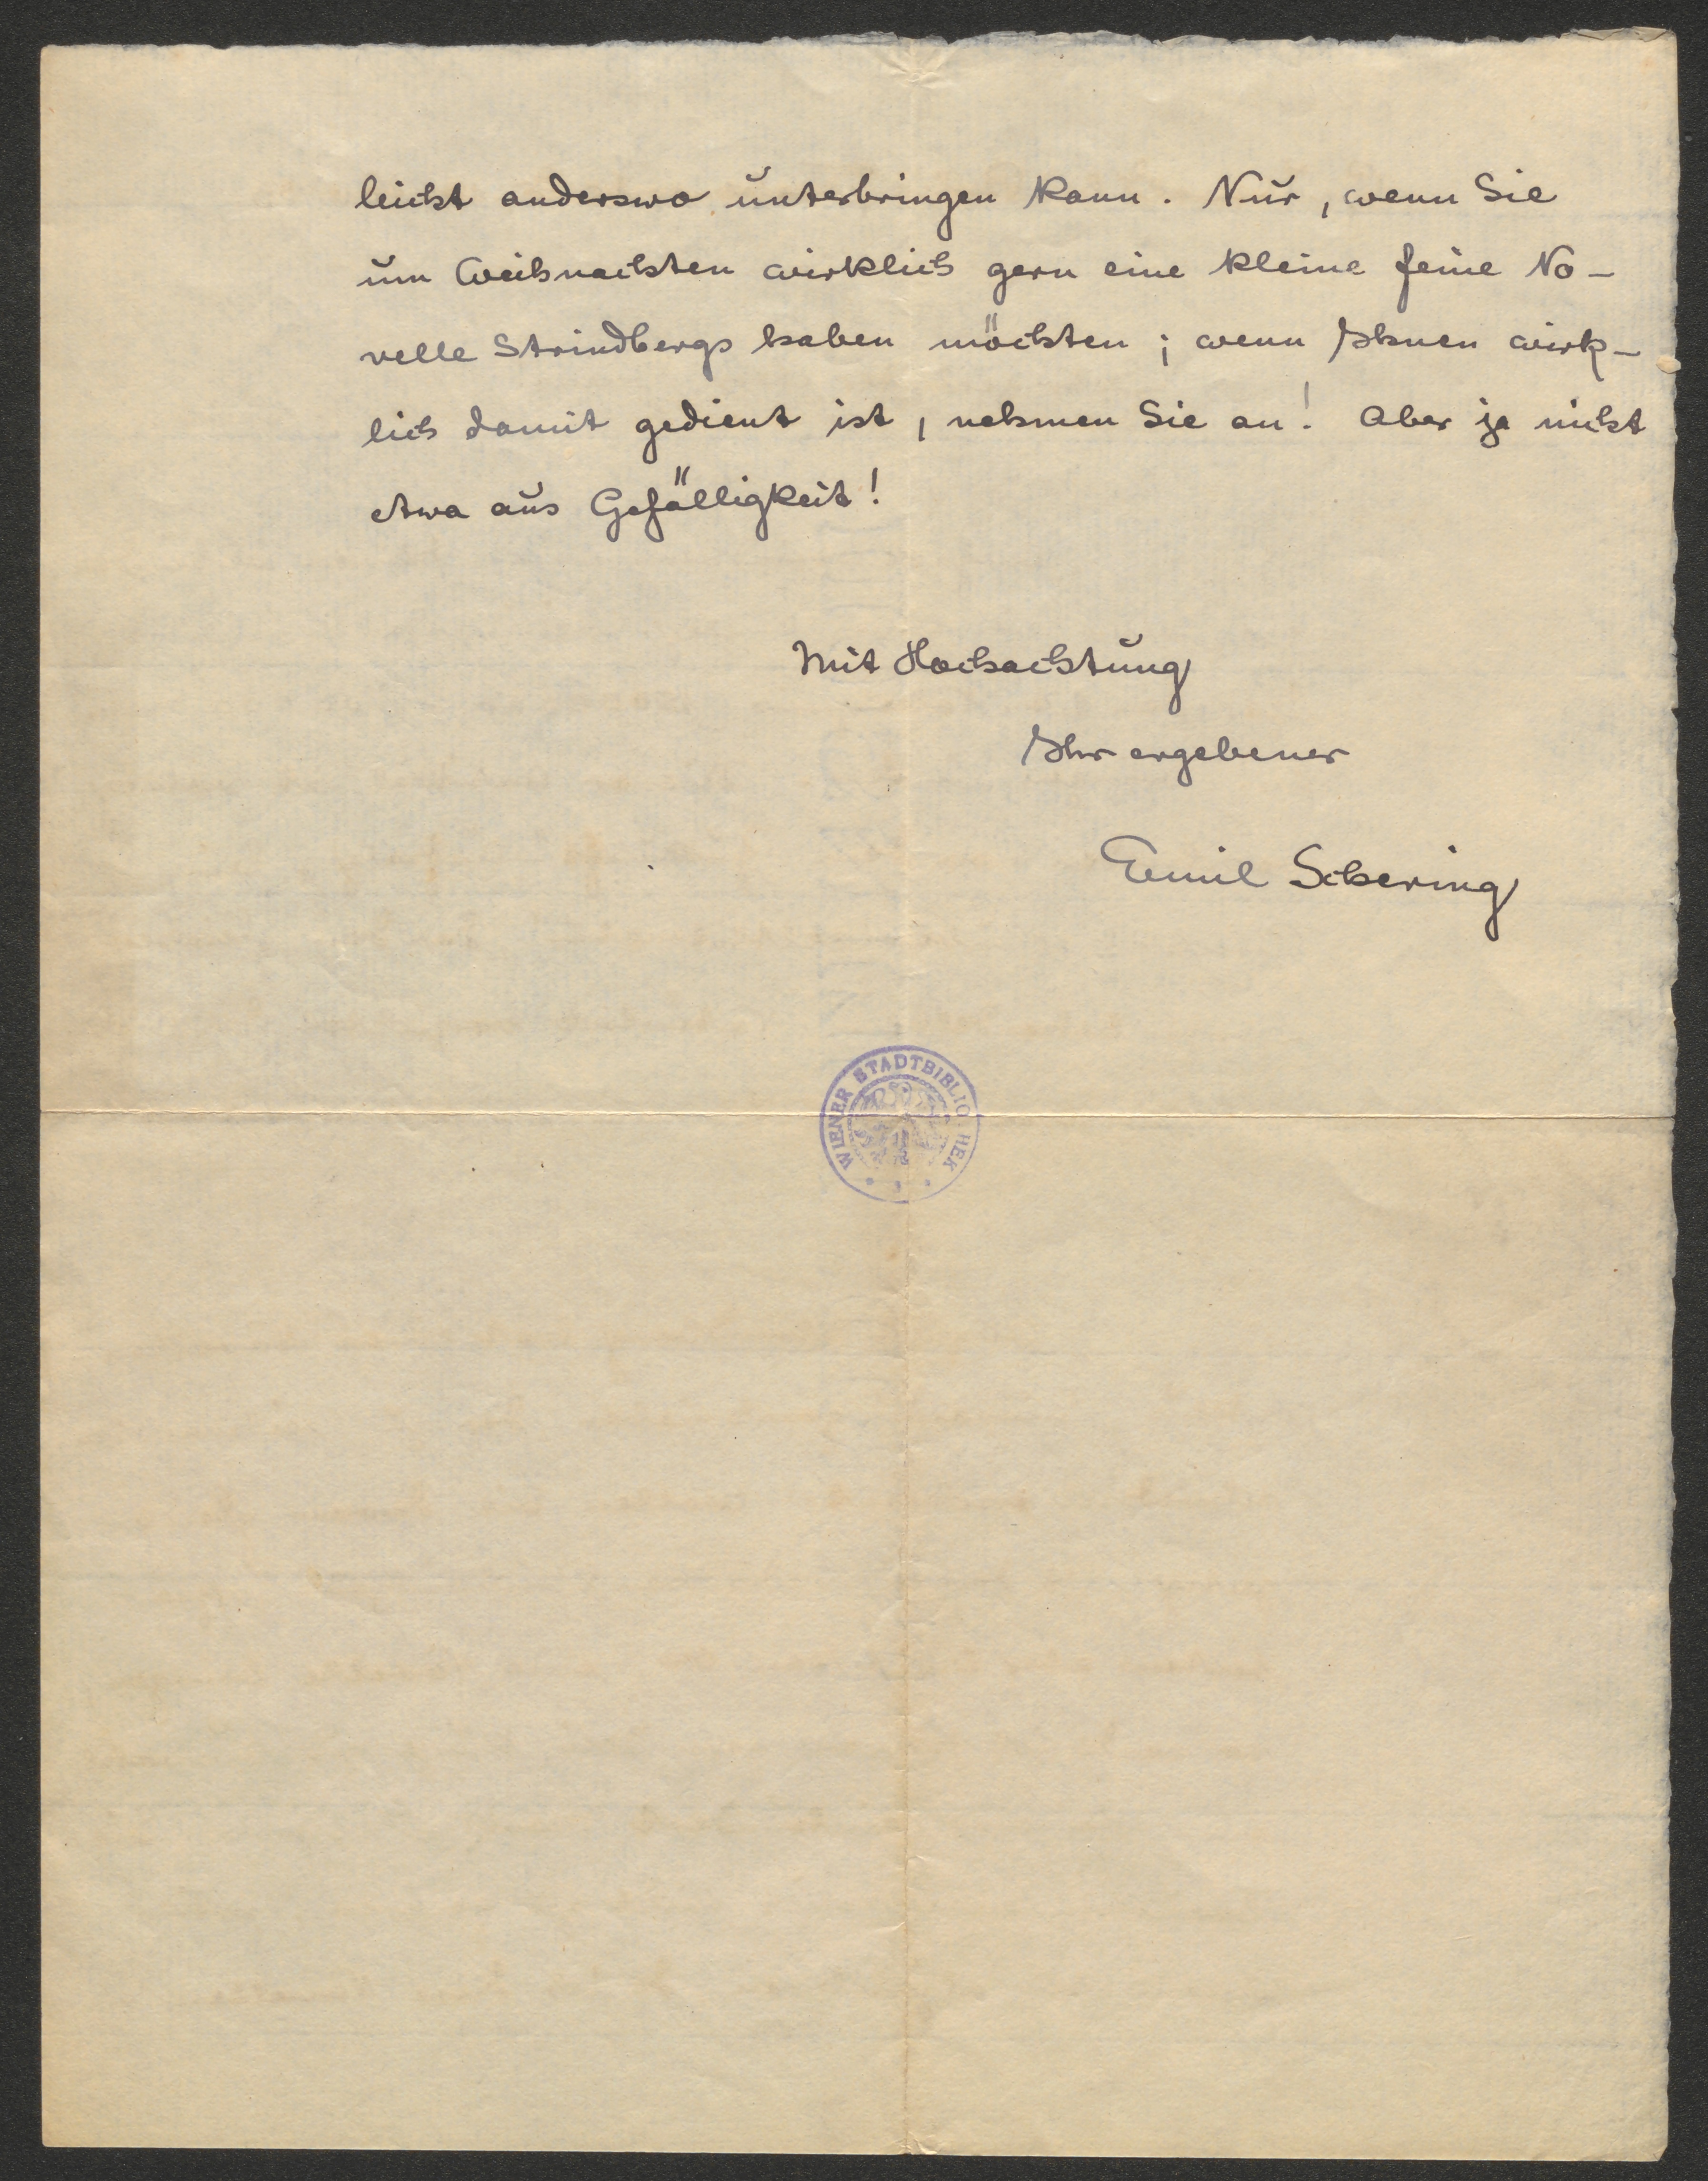 leicht anderswo unterbringen kann. Nur, wenn Sie
um Weihnachten wirklich gern eine kleine feine No-
velle Strindbergs haben möchten; wenn Ihnen wirk-
lich damit gedient ist, nehmen Sie an! Aber ja nicht
etwa aus Gefälligkeit!
Mit Hochachtung
Ihr ergebener
Emil Schering
WIENER STADTBIBLIOTHEK